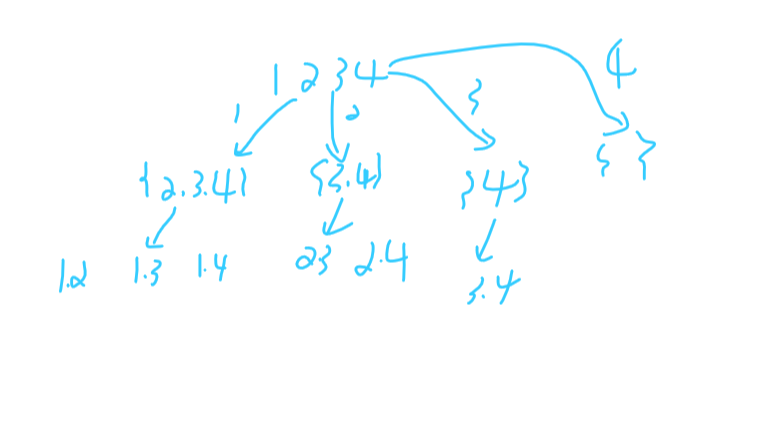 1 2 3 4
1 2 3 4
{2.3.4} {3.4} {4} { }
1.2 1.3 1.4 2 3 2.4 3.4